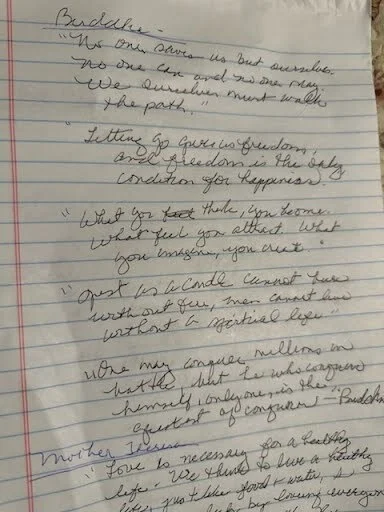 Buddha -
"No one saves us but ourselves.
No one can and no one may.
We ourselves must walk
the path."
"Letting go gives us freedom,
and freedom is the only
condition for happiness.
"What you feel think, you become.
What feel you attract. What
you imagine, you creat"
"Just as a candle cannot burn
without fire, men cannot live
without a spiritual life"
"One may conquer millions in
battle, but he who conquers
himself, only one, is the
greatest of conquerors" - Buddha
Mother Teresa
"Love is necessary for a healthy
life. We think to live a healthy
life, just like food & water, is
by loving everyone